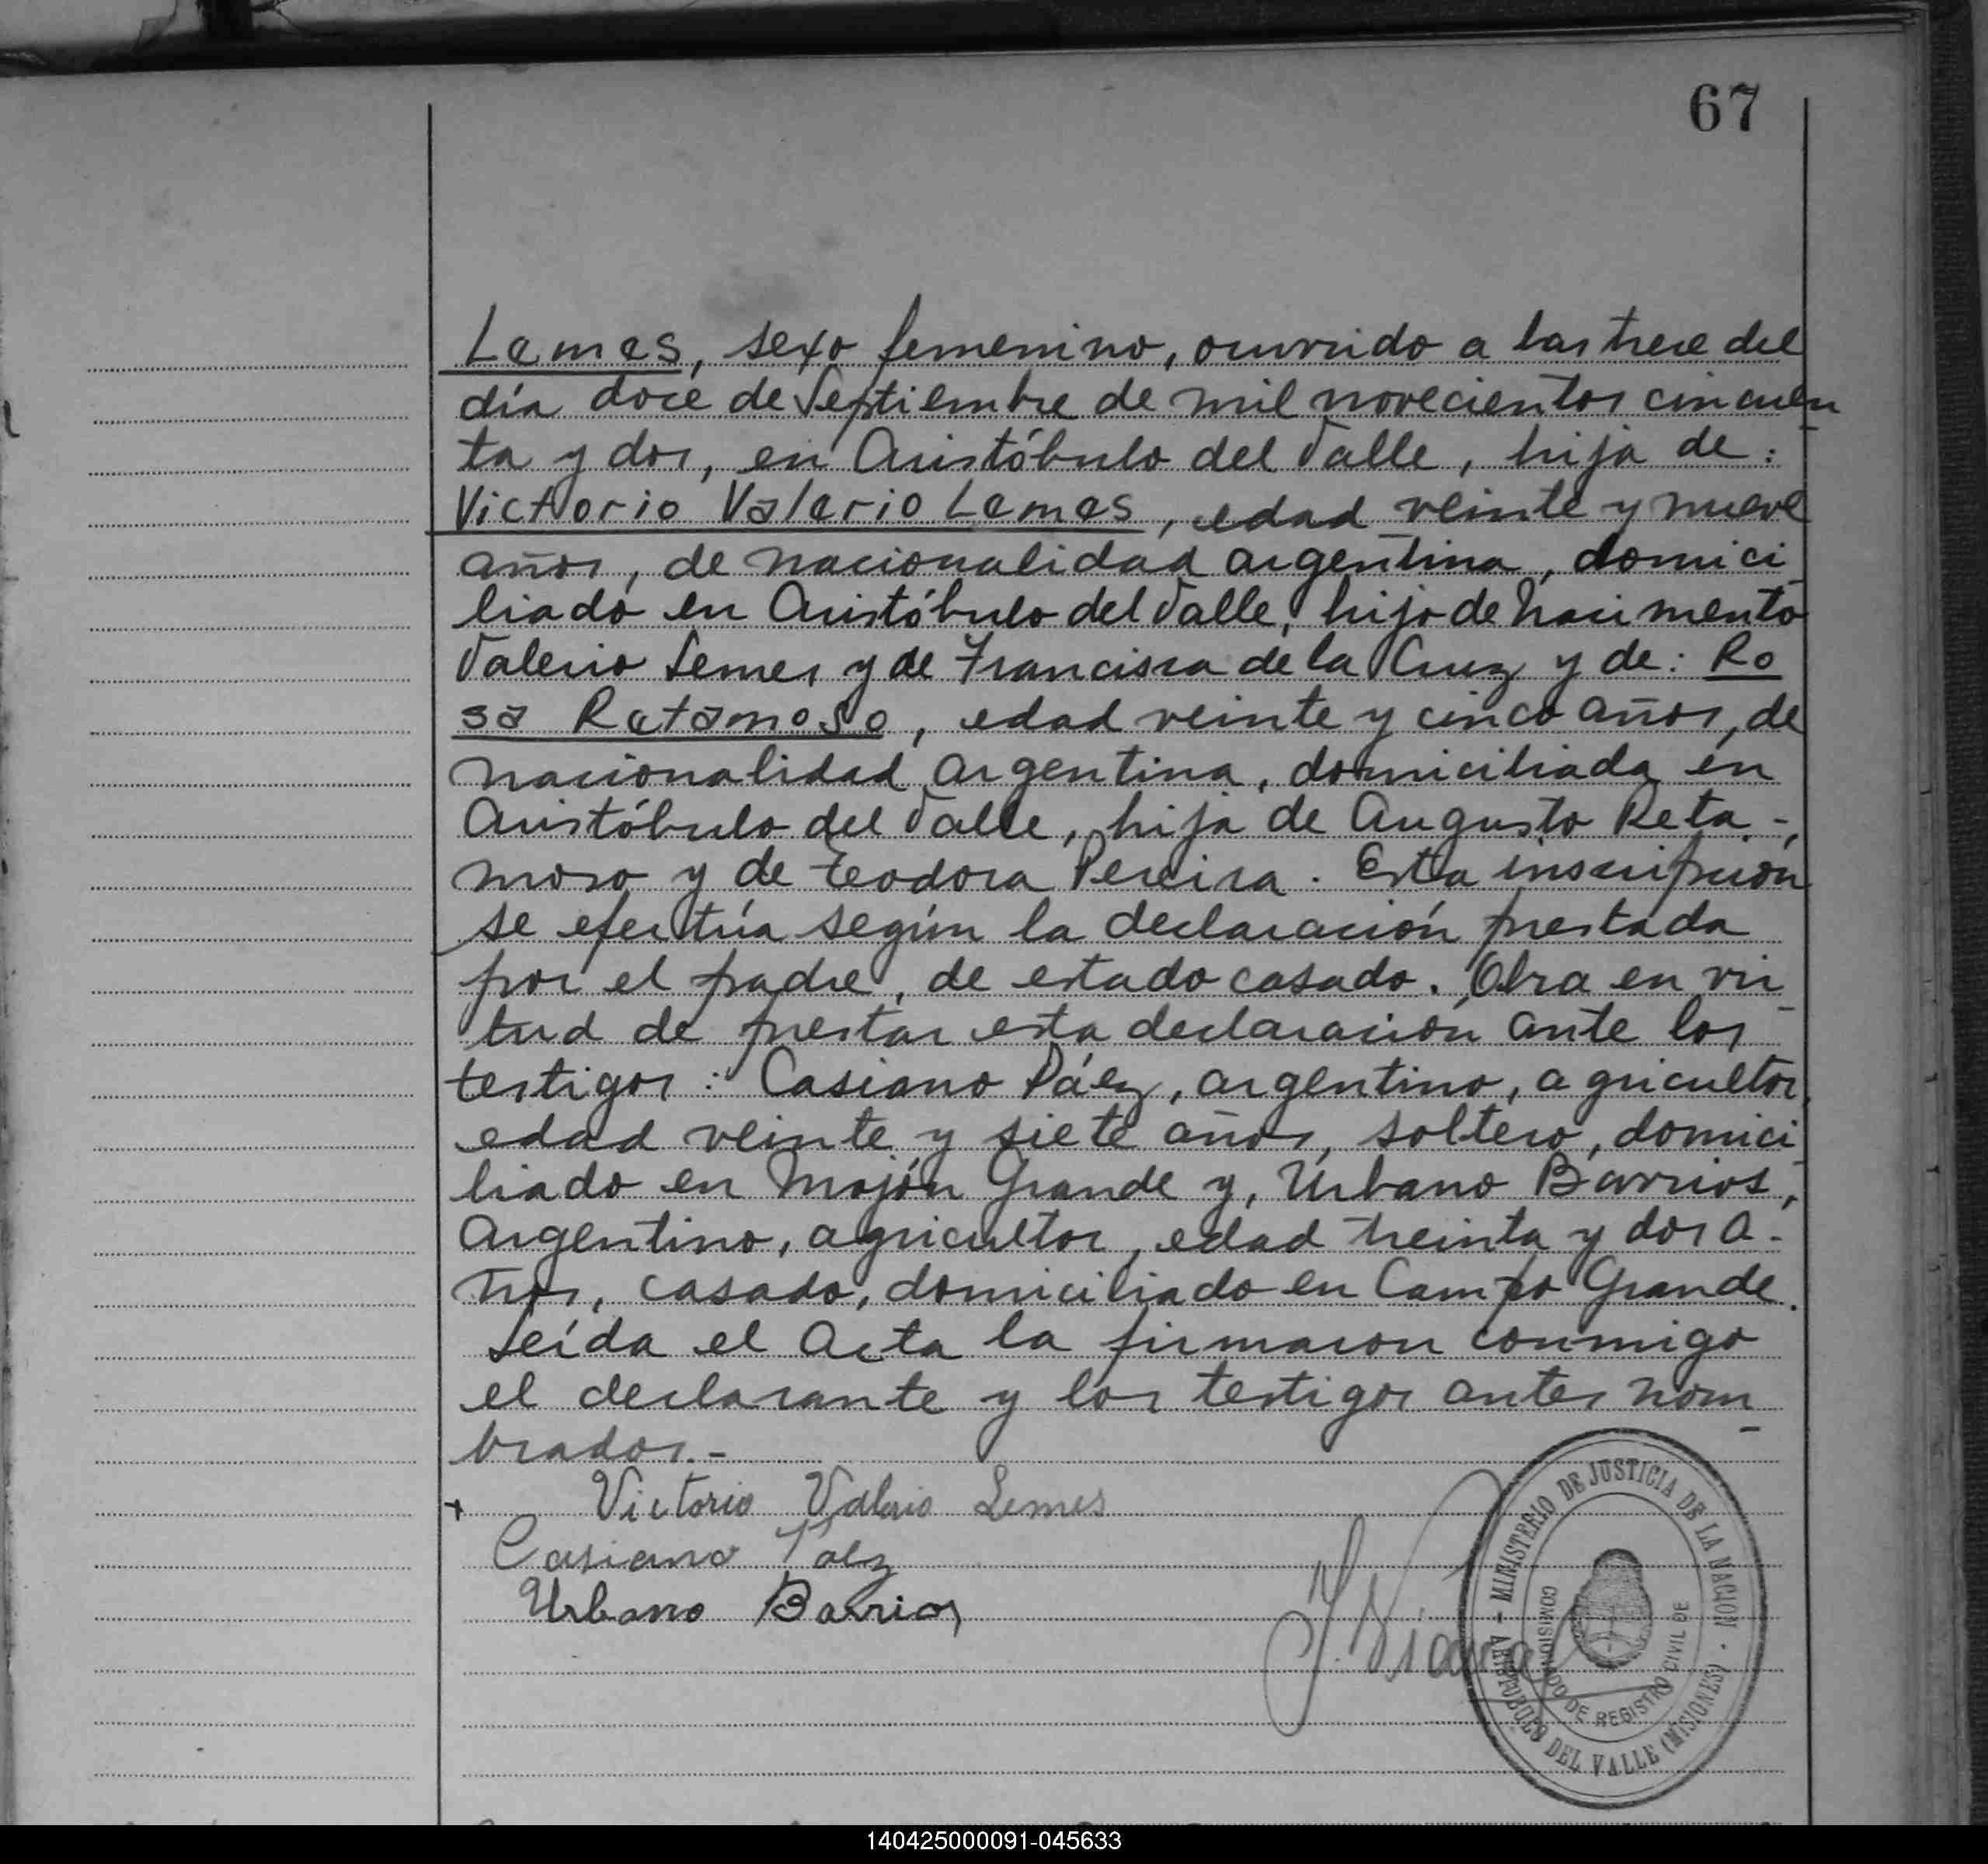 67
Lemes, sexo femenino, ocurrido a las trece del
día doce de Septiembre de mil novecientos cincuen
ta y dos, en Aristóbulo del Valle, hija de:
Victorio Valerio Lemes, edad veinte y nueve
años, de nacionalidad argentina, domici
liado en Aristóbulo del Valle, hijo de Nacimento
Valerio Lemes y de Francisca de la Cruz y de: Ro
sa Retamoso, edad veinte y cinco años, de
nacionalidad argentina, domiciliada en
Aristóbulo del Valle, hija de Augusto Reta-
moso y de Teodora Pereira. Esta inscripción
se efectúa según la declaración prestada
por el padre, de estado casado. Obra en vir
tud de prestar esta declaración ante los
testigos: Casiano Páez, argentino, agricultor,
edad veinte y siete años, soltero, domici
liado en Mojón Grande y, Urbano Barrios,
Argentino, agricultor, edad treinta y dos a-
ños, casado, domiciliado en Campo Grande.
Leída el Acta la firmaron conmigo
el declarante y los testigos antes nom
brados.-
+ Victorio Valerio Lemes
Casiano Páez
Urbano Barrios
MINISTERIO DE JUSTICIA DE LA NACION
COMISIONADO DE REGISTRO CIVIL DE
ARISTOBULO DEL VALLE (MISIONES)
140425000091-045633